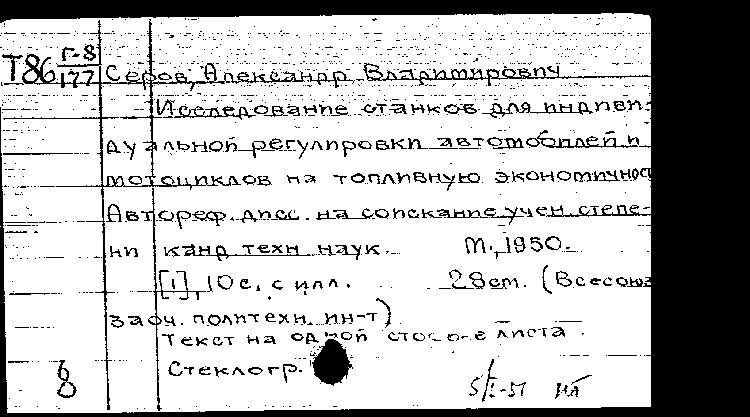 Т86 Г-8/177 Серов, Александр Владимирович
Исследование станков для индиви-
дуальной регулировки автомобилей и
мотоциклов на топливную экономичнос
Автореф. дисс. на соискание учен. степе-
ни канд. техн. наук. М., 1950.
[1], 10 с. с илл. 28 см. (Всесоюз
заоч. политехн. ин-т)
Текст на одной стороне листа.
Стеклогр.
8 5/I-51